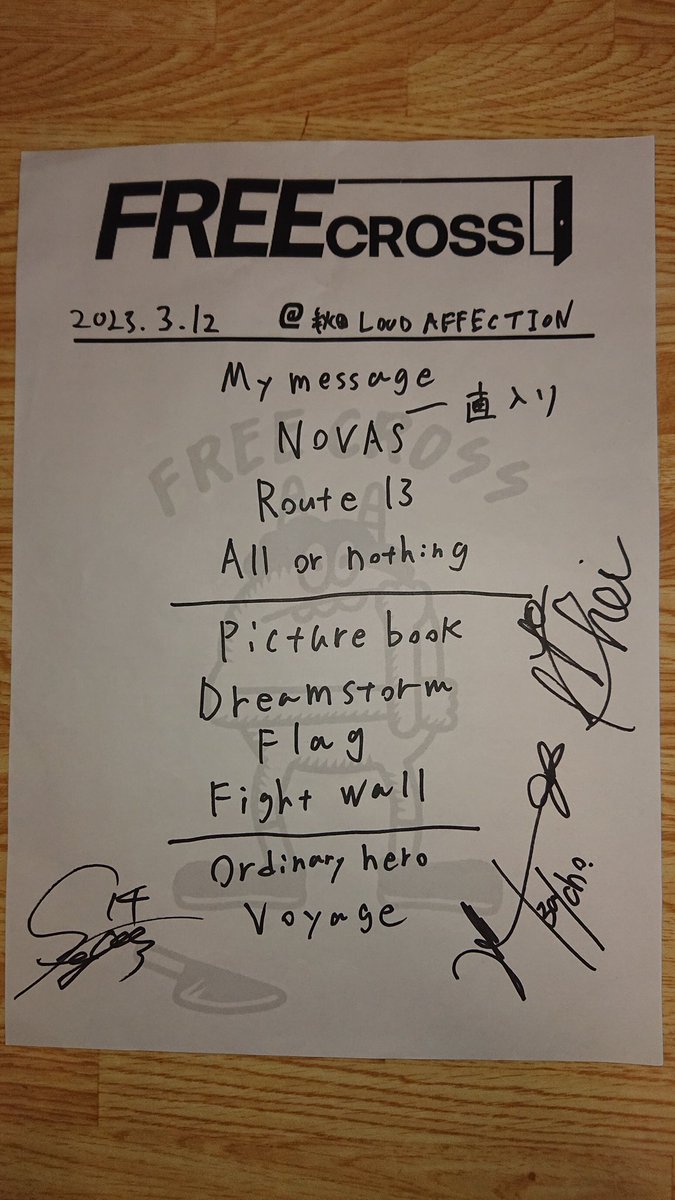 FREE CROSS
2023.3.12 @秋田 LOUD AFFECTION
My message
直入り
NOVAS
FREE CROSS
Route 13
All or nothing
Picture book
Dreamstorm
Flag
Fight wall
Ordinary hero
Voyage